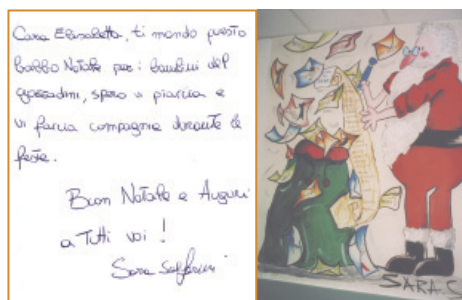 Cara Elisabetta, ti mando questo
babbo Natale per i bambini del
gozzadini, spero vi piaccia e
vi faccia compagnia durante le
feste.
Buon Natale e Auguri
a Tutti voi !
Sara
SARA.C